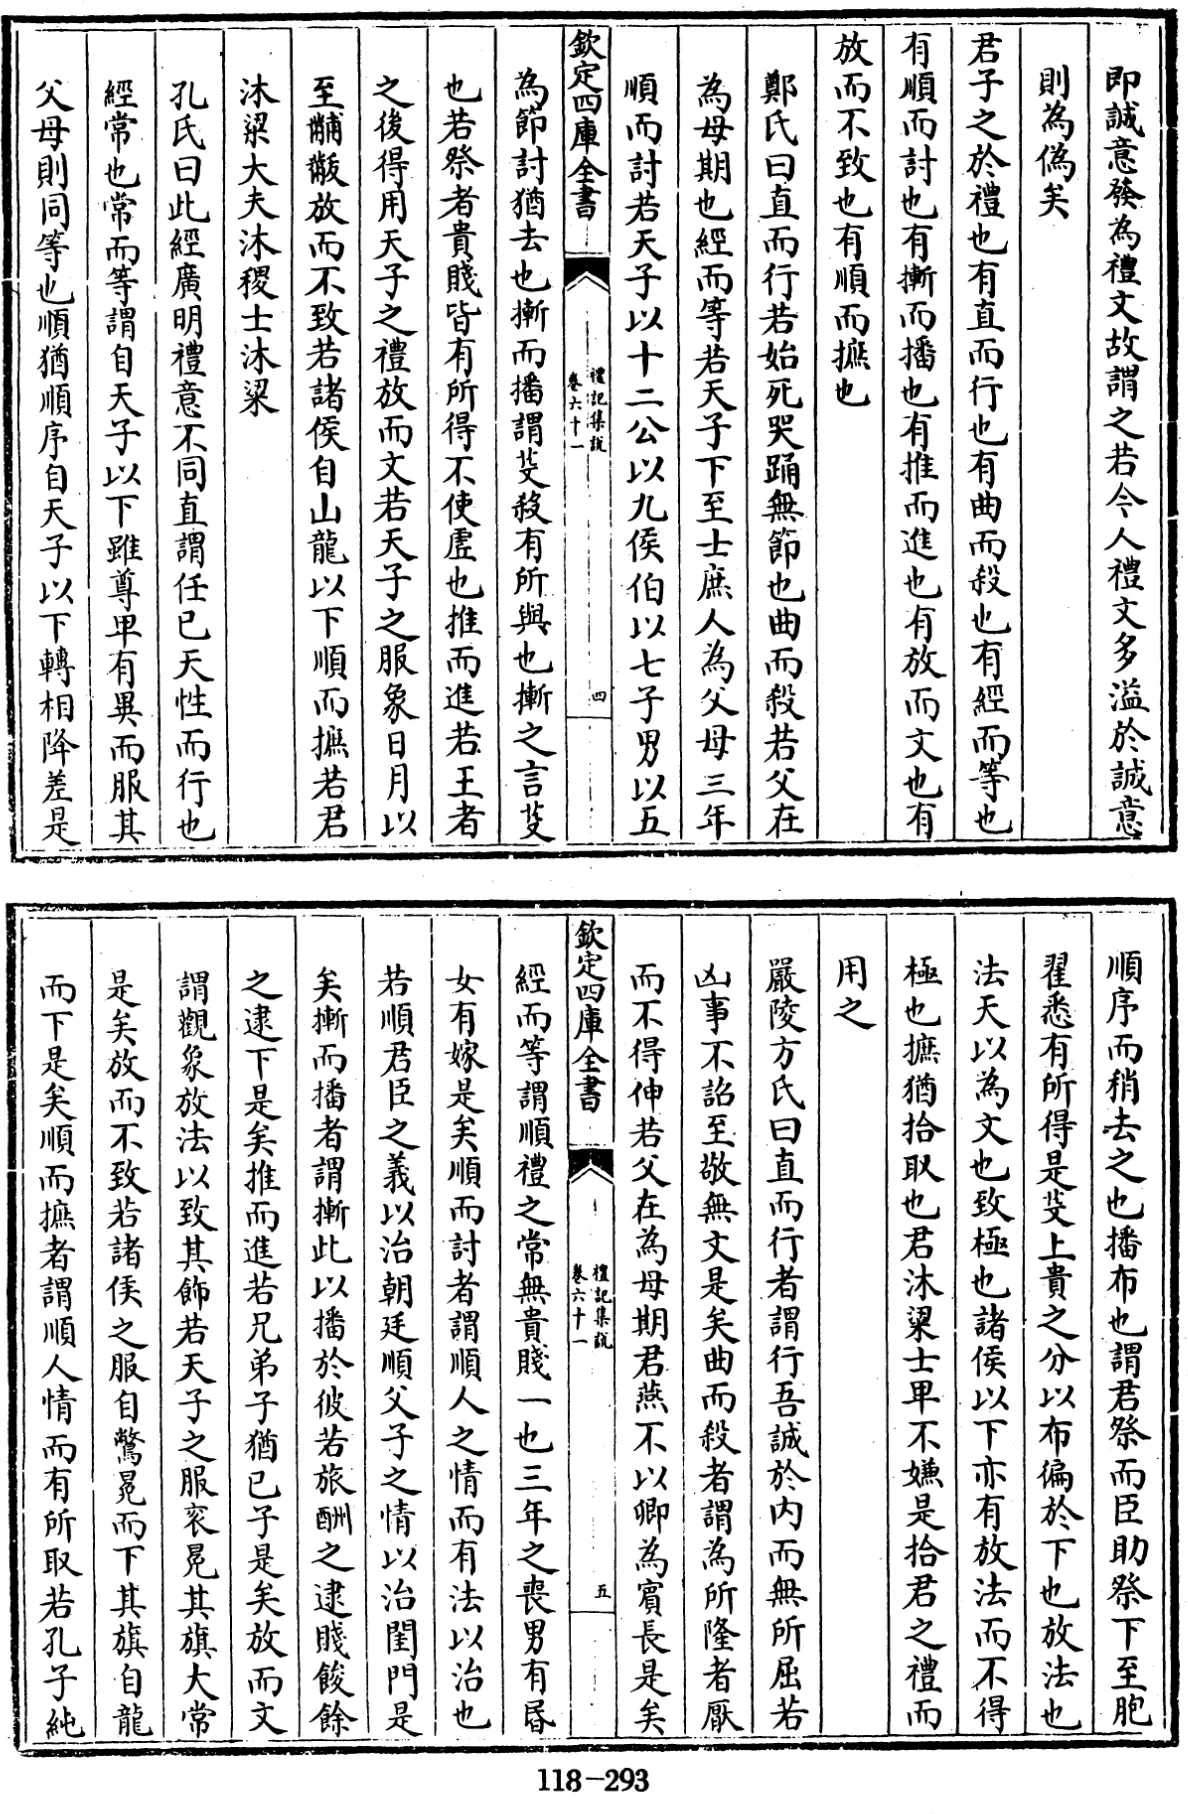 即誠意發為禮文故謂之若今人禮文多溢於誠意
則為偽矣
君子之於禮也有直而行也有曲而殺也有經而等也
有順而討也有摲而播也有推而進也有放而文也有
放而不致也有順而摭也
鄭氏曰直而行若始死哭踊無節也曲而殺若父在
為母期也經而等若天子下至士庶人為父母三年
順而討若天子以十二公以九侯伯以七子男以五
欽定四庫全書
禮記集說
卷六十一
四
為節討猶去也摲而播謂芟殺有所與也摲之言芟
也若祭者貴賤皆有所得不使虛也推而進若王者
之後得用天子之禮放而文若天子之服象日月以
至黼黻放而不致若諸侯自山龍以下順而摭若君
沐粱大夫沐稷士沐粱
孔氏曰此經廣明禮意不同直謂任己天性而行也
經常也常而等謂自天子以下雖尊卑有異而服其
父母則同等也順猶順序自天子以下轉相降差是
順序而稍去之也播布也謂君祭而臣助祭下至胞
翟悉有所得是芟上貴之分以布徧於下也放法也
法天以為文也致極也諸侯以下亦有放法而不得
極也摭猶拾取也君沐粱士卑不嫌是拾君之禮而
用之
嚴陵方氏曰直而行者謂行吾誠於內而無所屈若
凶事不詔至敬無文是矣曲而殺者謂為所隆者厭
而不得伸若父在為母期君燕不以卿為賔長是矣
欽定四庫全書
禮記集說
卷六十一
五
經而等謂順禮之常無貴賤一也三年之喪男有昏
女有嫁是矣順而討者謂順人之情而有法以治也
若順君臣之義以治朝廷順父子之情以治閨門是
矣摲而播者謂摲此以播於彼若旅酬之逮賤餕餘
之逮下是矣推而進若兄弟子猶已子是矣放而文
謂觀象放法以致其飾若天子之服衮冕其旗大常
是矣放而不致若諸侯之服自鷩冕而下其旗自龍
而下是矣順而摭者謂順人情而有所取若孔子純
118-293